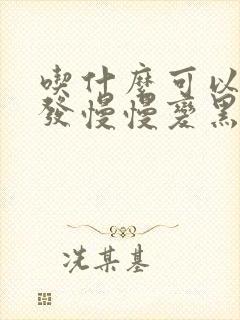 喫什麼可以
發慢慢變黑
冼某基